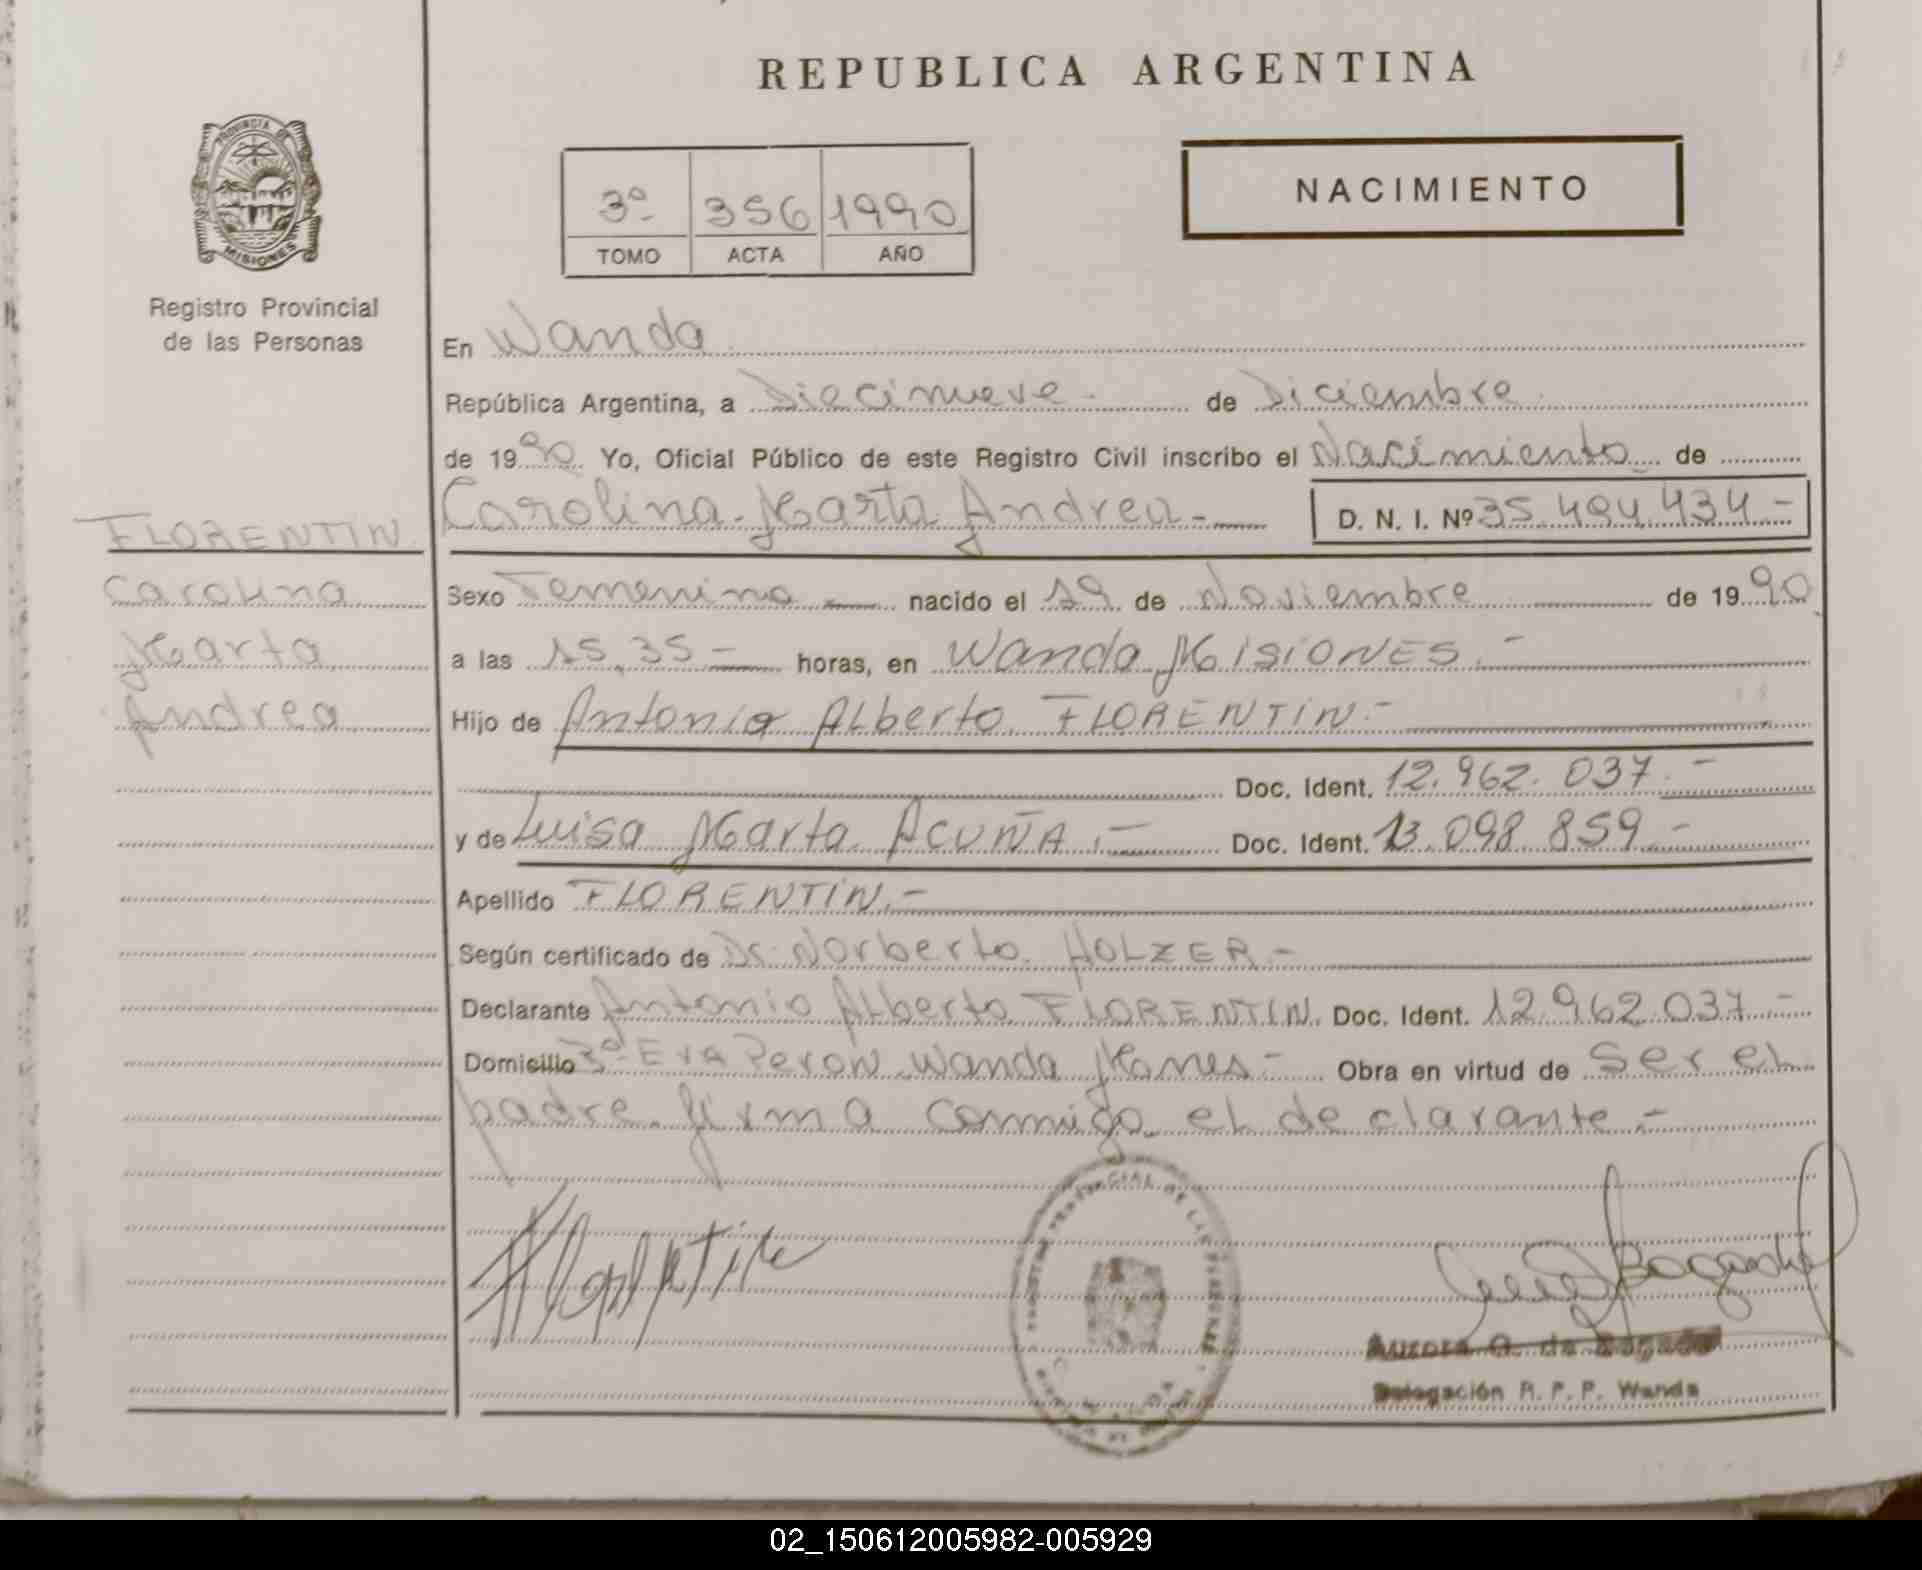 REPUBLICA ARGENTINA
PROVINCIA DE MISIONES
Registro Provincial
de las Personas
3º 356 1990
TOMO ACTA AÑO
NACIMIENTO
En Wanda
República Argentina, a Diecinueve - de Diciembre
de 1990 Yo, Oficial Público de este Registro Civil inscribo el Nacimiento de
Carolina Marta Andrea - D. N. I. Nº 35.494.434 -
FLORENTIN
Carolina
Marta
Andrea
Sexo Femenino nacido el 19 de Noviembre de 1990
a las 15,35 - horas, en Wanda MISIONES.-
Hijo de Antonio Alberto FLORENTIN.-
Doc. Ident. 12.962.037.-
y de Luisa Marta ACUÑA.- Doc. Ident. 13.098.859 -
Apellido FLORENTIN.-
Según certificado de Dr. Norberto HOLZER -
Declarante Antonio Alberto FLORENTIN. Doc. Ident. 12.962.037 -
Domicilio 3º Eva Peron Wanda Mones - Obra en virtud de Ser el
padre. firma conmigo el declarante.-
Aurora G. de Bogado
Delegación R. P. P. Wanda
02_150612005982-005929